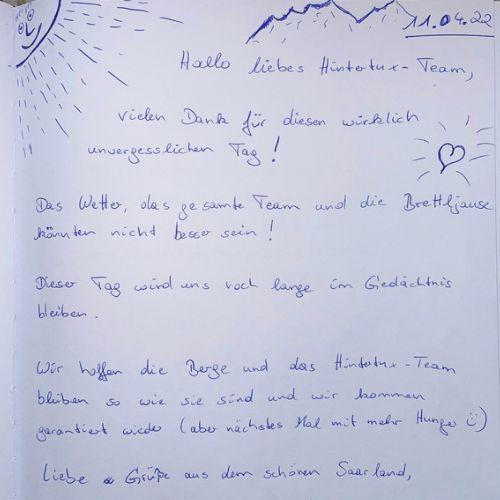 11.04.22
Hallo liebes Hintertux-Team,
vielen Dank für diesen wirklich
unvergesslichen Tag!
Das Wetter, das gesamte Team und die Brettljause
könnten nicht besser sein!
Dieser Tag wird uns noch lange im Gedächtnis
bleiben.
Wir hoffen die Berge und das Hintertux-Team
bleiben so wie sie sind und wir kommen
garantiert wieder (aber nächstes Mal mit mehr Hunger ☺)
Liebe Grüße aus dem schönen Saarland,